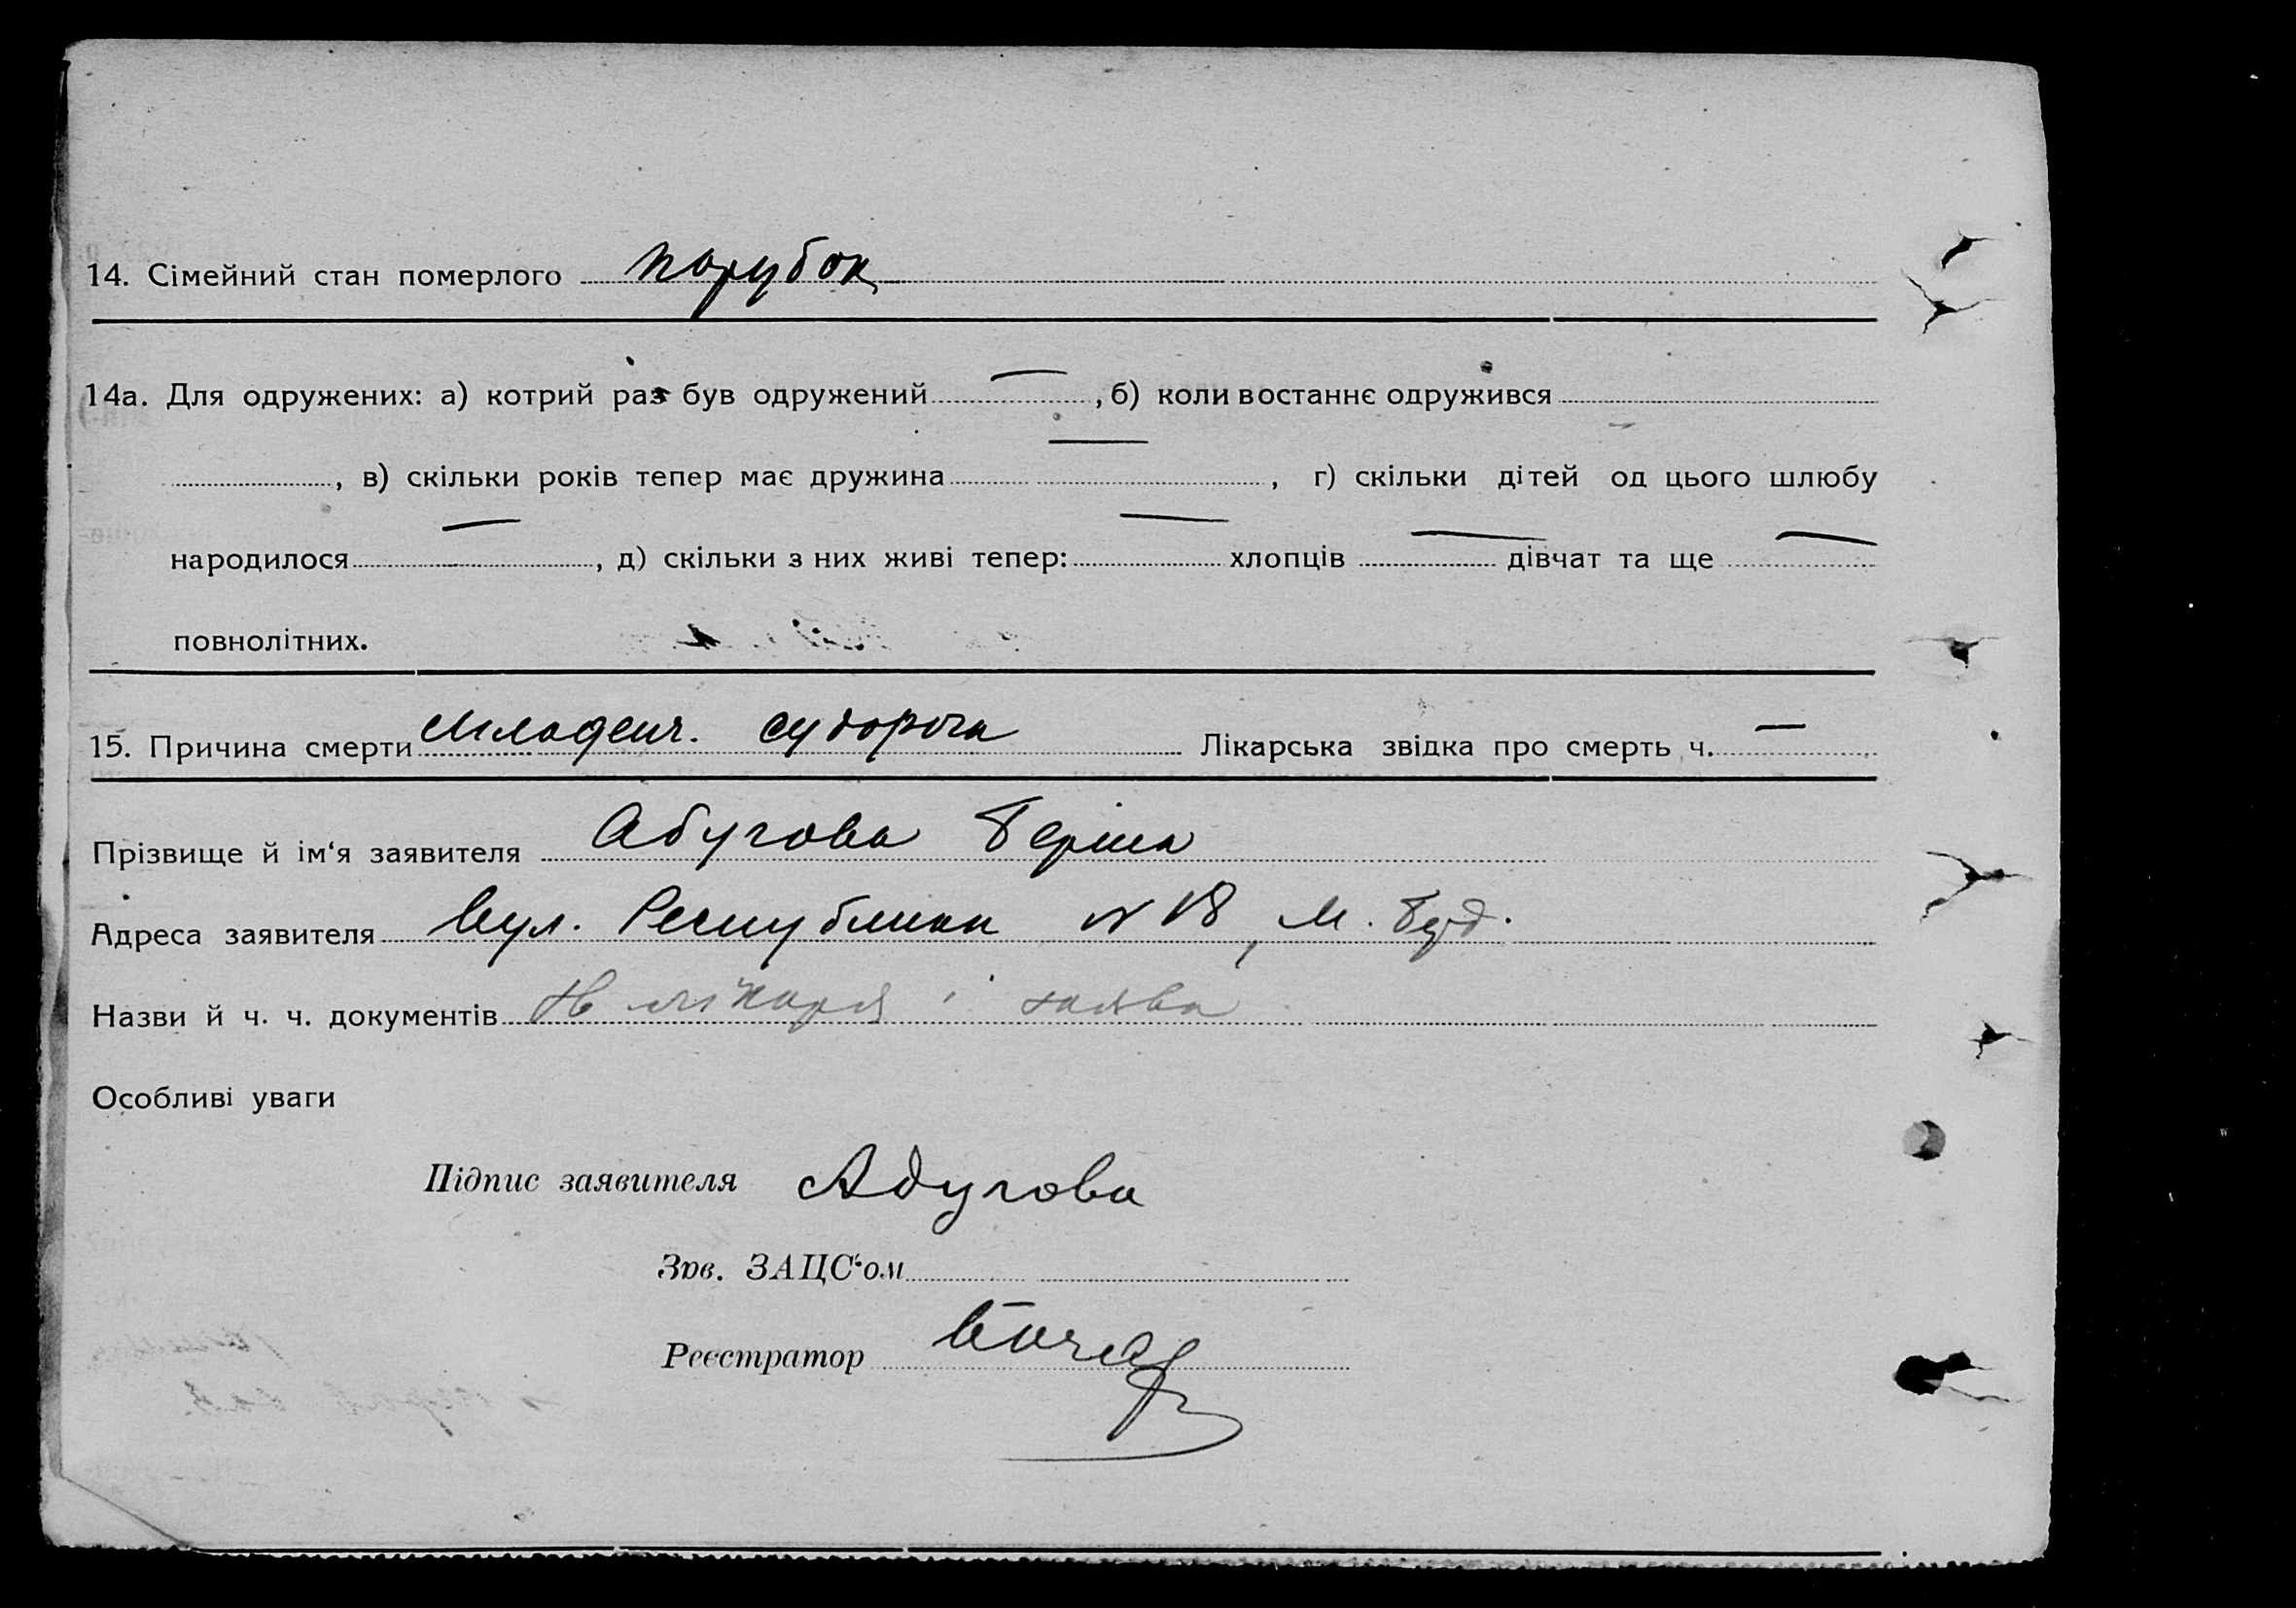 14. Сімейний стан померлого парубок
14а. Для одружених: а) котрий раз був одружений —, б) коли востаннє одружився
, в) скільки років тепер має дружина —, г) скільки дітей од цього шлюбу
народилося —, д) скільки з них живі тепер: — хлопців — дівчат та ще —
повнолітних.
15. Причина смерти Младенч. судорога Лікарська звідка про смерть ч. —
Прізвище й ім‘я заявителя Абугова Берта
Адреса заявителя вул. Республики № 18, М. Буд.
Назви й ч. ч. документів лікаря і заява
Особливі уваги
Підпис заявителя Абугова
Зав. ЗАЦС‘ом
Реєстратор